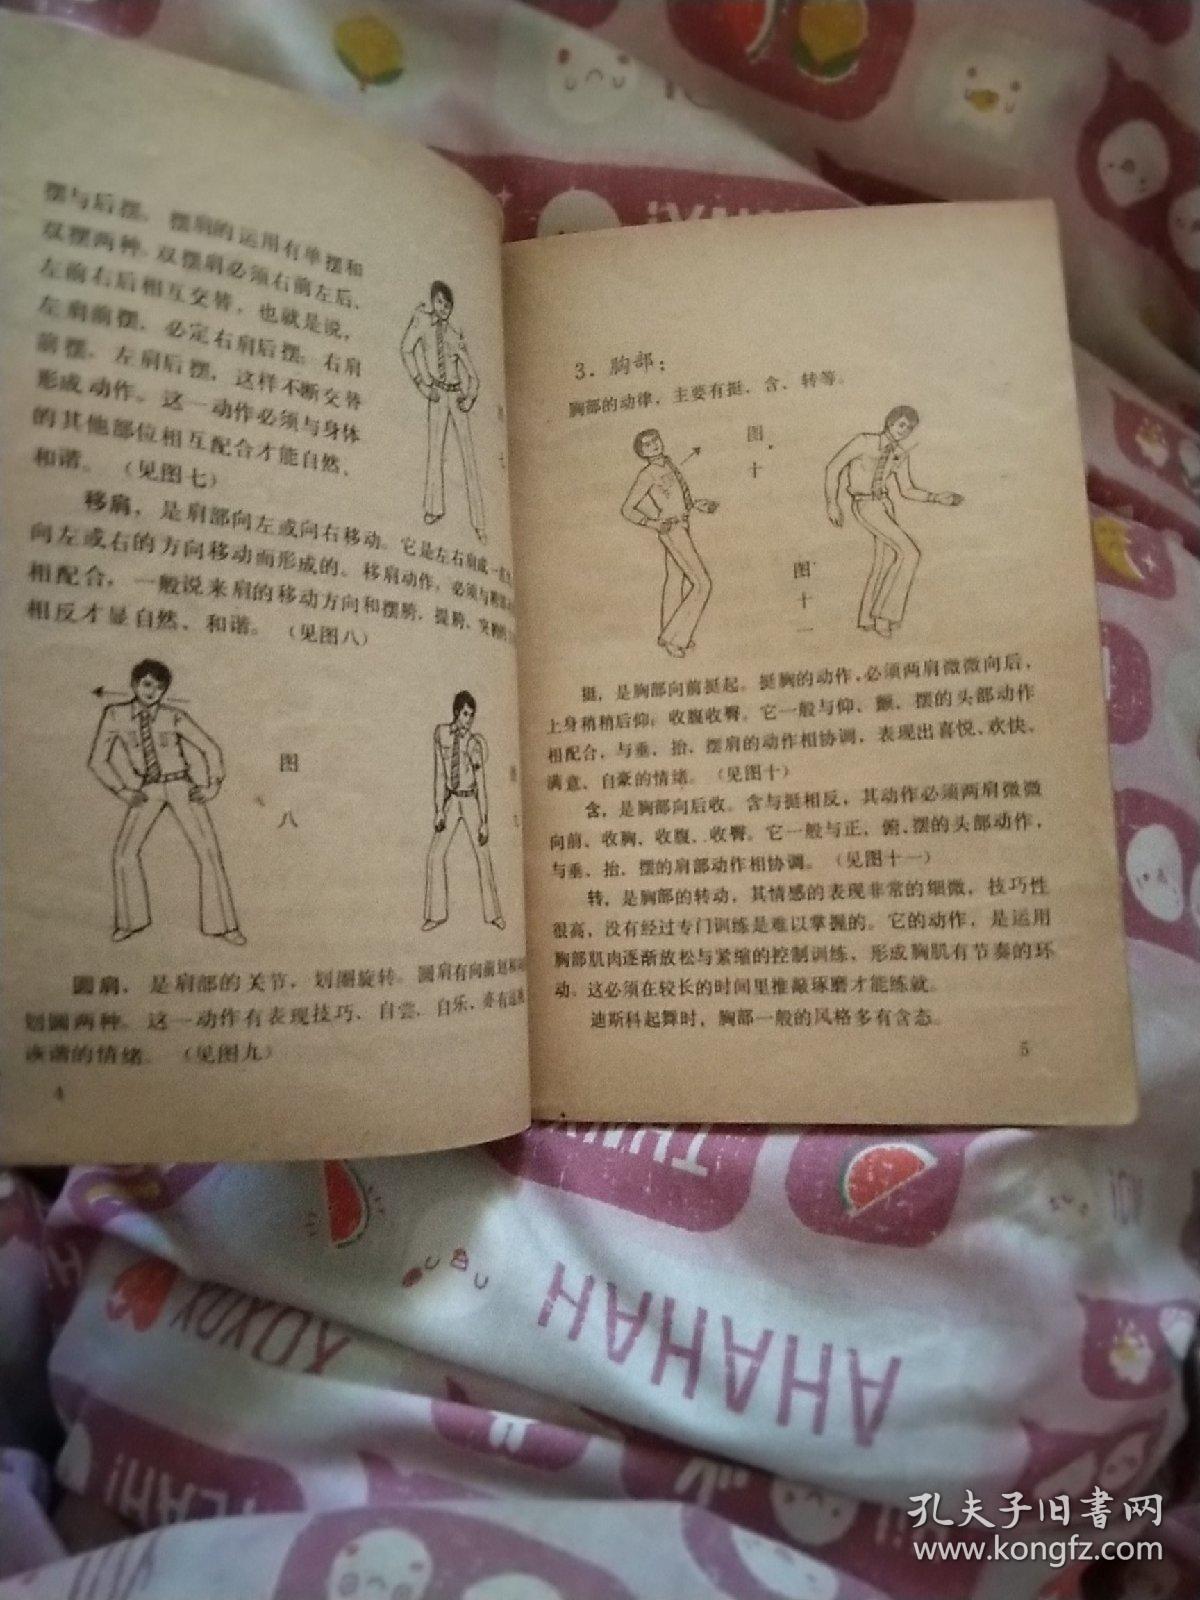 摆与后摆。摆肩的运用有单摆和
双摆两种。双摆肩必须右前左后、
左前右后相互交替，也就是说，
左肩前摆，必定右肩后摆；右肩
前摆，左肩后摆，这样不断交替
形成动作。这一动作必须与身体
的其他部位相互配合才能自然、
和谐。（见图七）
移肩，是肩部向左或向右移动。它是左右肩成一
向左或右的方向移动而形成的。移肩动作，必须与
相配合，一般说来肩的移动方向和摆胯、提胯、突胯
相反才显自然、和谐。（见图八）
图
八
圆肩，是肩部的关节，划圈旋转。圆肩有向前划
划圆两种。这一动作有表现技巧、自尝、自乐，亦有
诙谐的情绪。（见图九）
4
3．胸部：
胸部的动律，主要有挺、含、转等。
图
十
图
十
一
挺，是胸部向前挺起。挺胸的动作，必须两肩微微向后，
上身稍稍后仰；收腹收臀。它一般与仰、颤、摆的头部动作
相配合，与垂、抬、摆肩的动作相协调，表现出喜悦、欢快、
满意、自豪的情绪。（见图十）
含，是胸部向后收。含与挺相反，其动作必须两肩微微
向前、收胸、收腹、收臀。它一般与正、俯、摆的头部动作，
与垂、抬、摆的肩部动作相协调。（见图十一）
转，是胸部的转动，其情感的表现非常的细微，技巧性
很高，没有经过专门训练是难以掌握的。它的动作，是运用
胸部肌肉逐渐放松与紧缩的控制训练，形成胸肌有节奏的环
动。这必须在较长的时间里推敲琢磨才能练就。
迪斯科起舞时，胸部一般的风格多有含态。
5
XOXOX
AHAHAH
YEAH!
孔夫子旧书网
www.kongfz.com